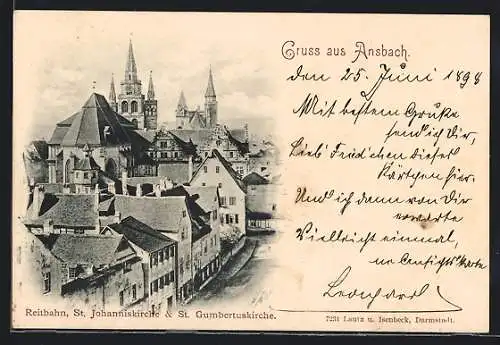 Gruss aus Ansbach.
den 25. Juni 1898
Mit bestem Gruße
send ich dir,
Liebs' Friedchen dieses
Kärtchen hier.
Und ich dann von Dir
erwarte
Vielleicht einmal,
ne Ansichtskarte
Leonhard.
Reitbahn, St. Johanniskirche & St. Gumbertuskirche.
7231 Lautz u. Isenbeck, Darmstadt.